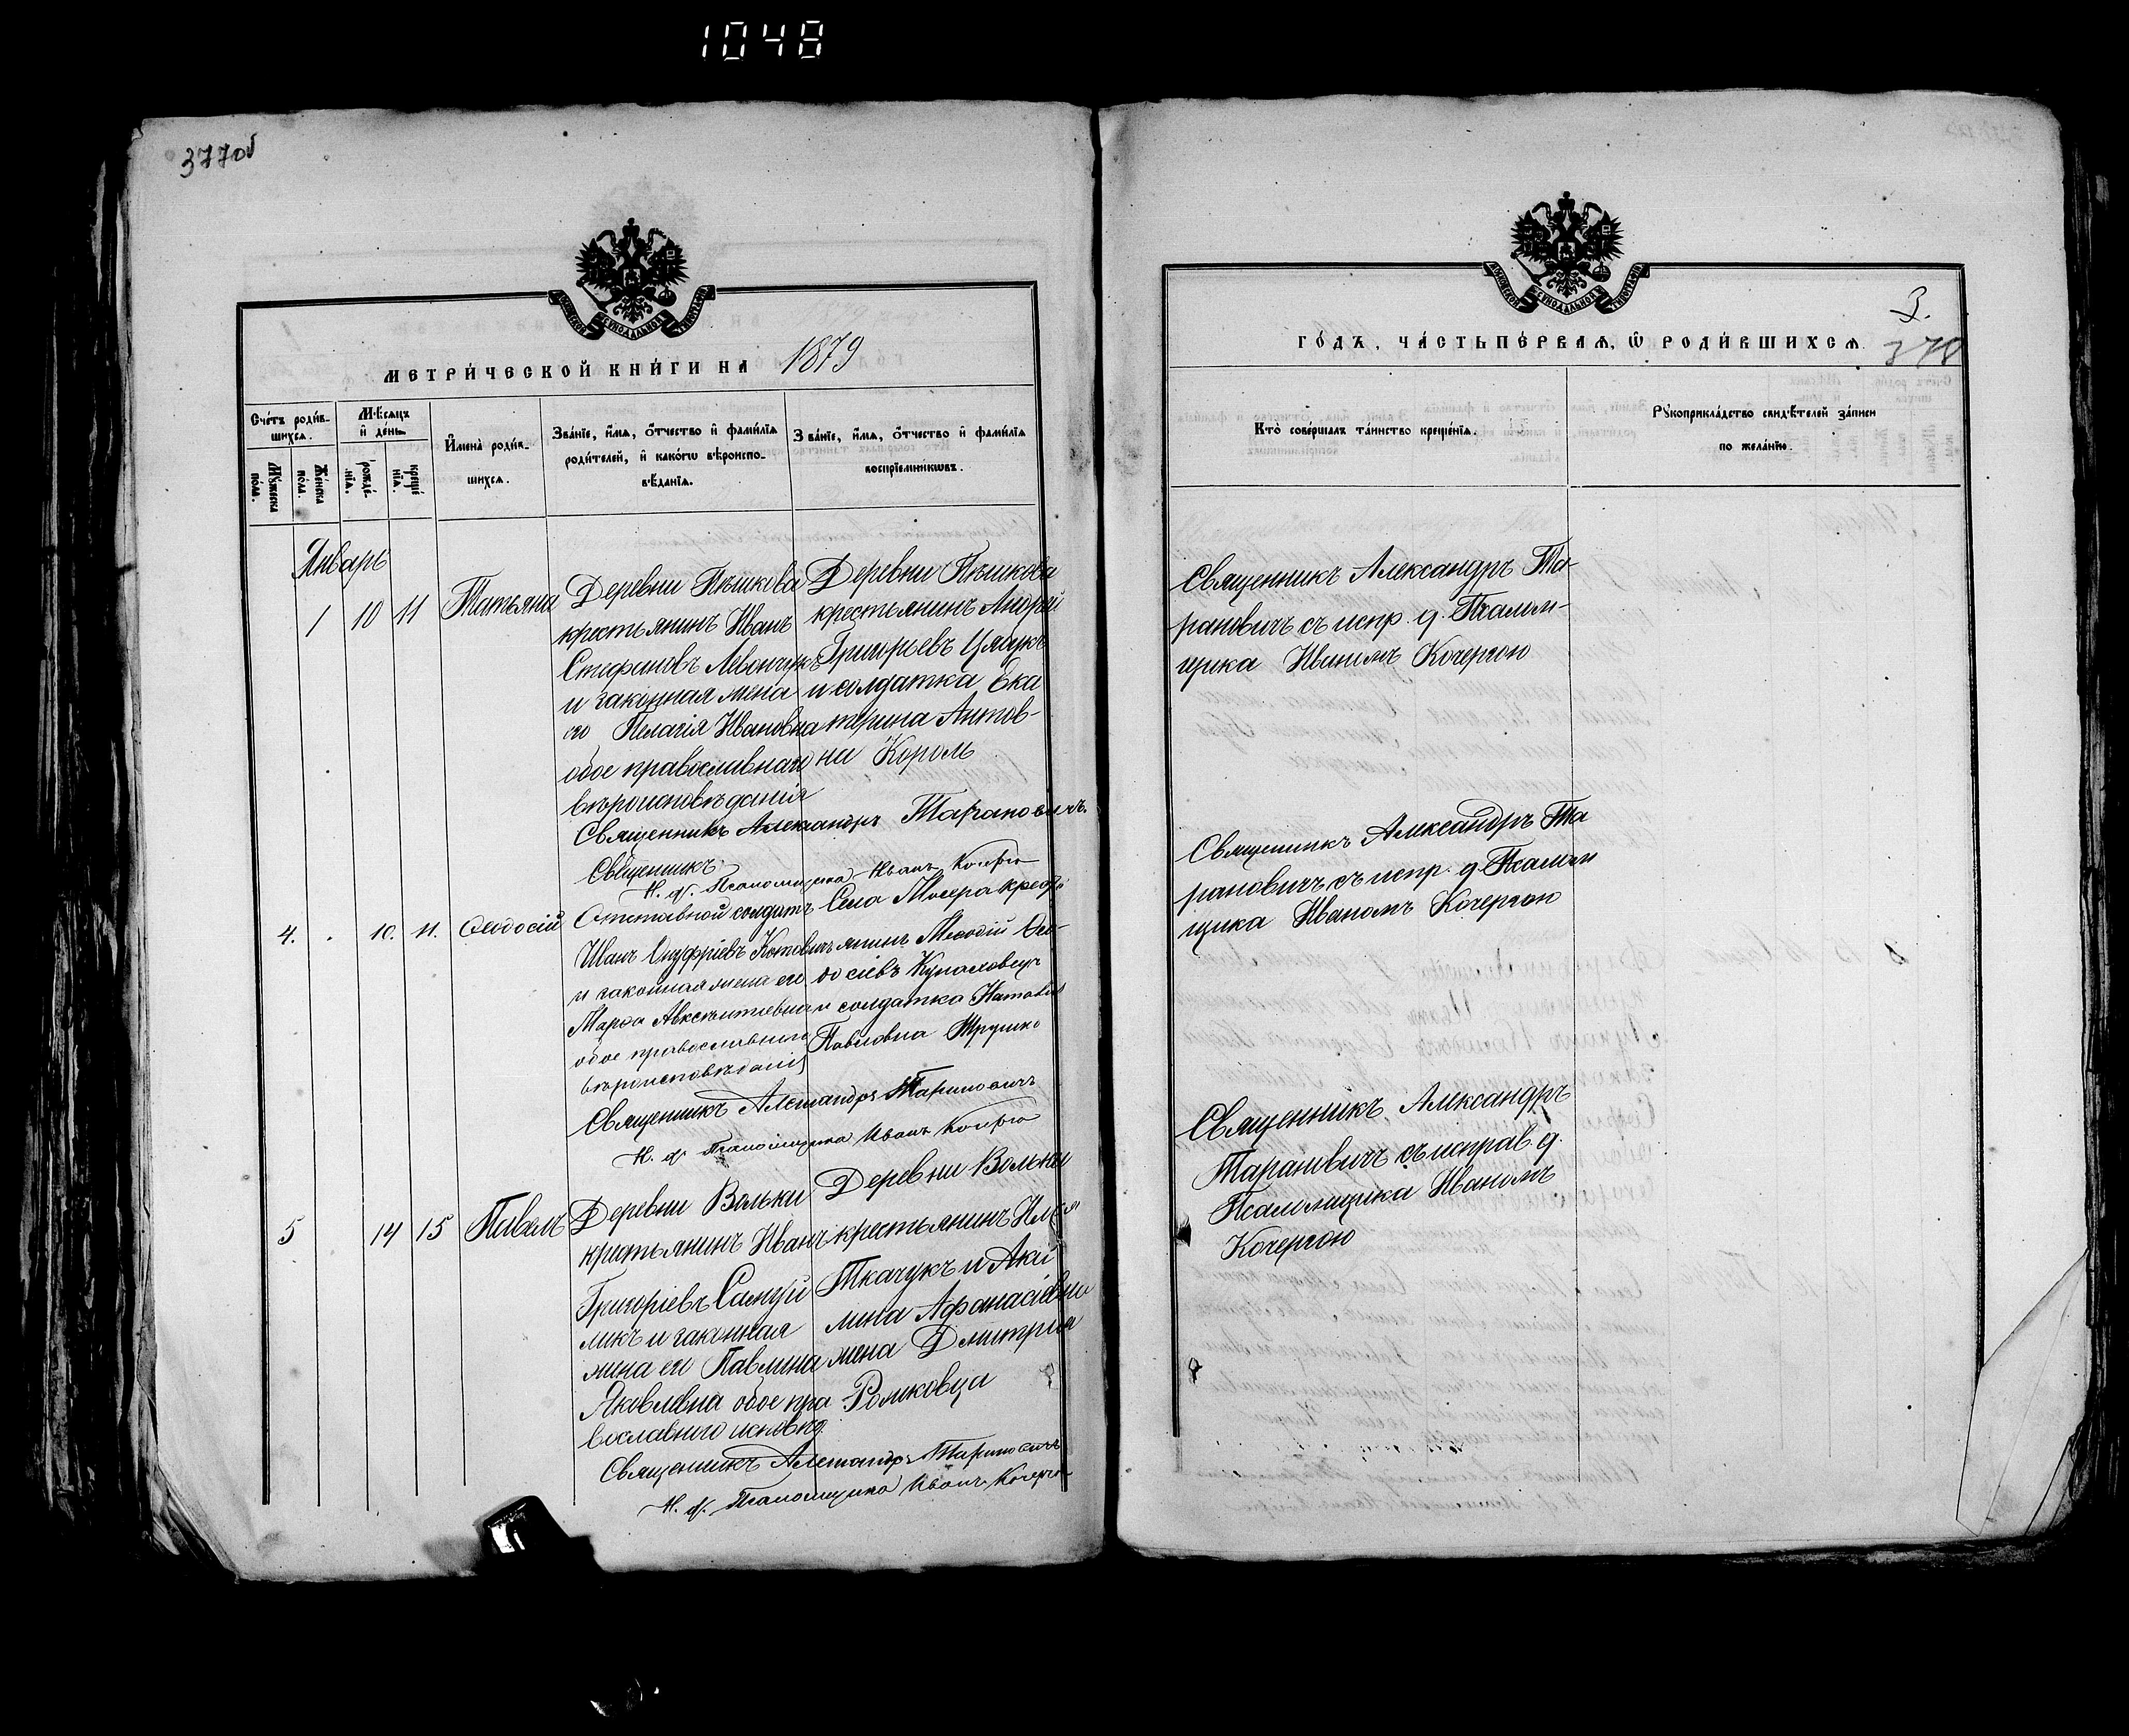 1048
377об
МОСКОВСКОЙ СѴНОДАЛЬНОЙ ТИПОГРАФІИ
МЕТРИ́ЧЕСКОЙ КНИ́ГИ НА 1879
Сче́тъ роди́в-
шихсѧ.
Мѣ́сѧцъ
и҆ де́нь
Мꙋ́жеска по́ла.
Же́нска по́ла.
рожде́-
нїѧ.
креще́
нїѧ.
И҆мена̀ роди́в-
шихсѧ.
Зва́нїе, и҆́мѧ, ѻ҆́тчество и҆ фами́лїѧ
роди́телей, и҆ како́гѡ вѣроиспо-
вѣ́данїѧ.
Зва́нїе, и҆́мѧ, ѻ҆́тчество и҆ фами́лїѧ
воспрїе́мникѡвъ.
Январь
1 10 11 Татьяна
Деревни Пѣшкова
крестьянинъ Иванъ
Стефановъ Левончукъ
и законная жена
его Пелагія Ивановна
обое православнаго
вѣроисповѣданія
Деревни Пѣшкова
крестьянинъ Андрей
Григорьевъ
и солдатка Ека
терина Антов-
на Король
Священникъ Александръ Тарановичъ.
Священникъ
И. д. Псаломщика Иванъ Кочерго
4. 10. 11. Ѳеодосій
Отставной солдатъ
Иванъ Онуфріевъ Котовичъ
и законная жена его
Марѳа Авксентіевна
обое православнаго
вѣроисповѣданія
Села Мокра крестья
янинъ Меѳодій Ѳео-
досіевъ
и солдатка Наталія
Павловна Трушко
Священникъ Александръ Тарановичъ
И. д. Псаломщика Иванъ Кочерго
5 14 15 Павелъ
Деревни Вольки
крестьянинъ Иванъ
Григоріевъ Самуй
ликъ и законная
жена его Павлина
Яковлевна обое пра
вославного исповѣд.
Деревни Вольки
крестьянинъ Илья
Ткачукъ и Аки
лина Афанасіевна
жена Дмитрія
Ромковца
Священникъ Александръ Тарановичъ
И. д. Псаломщика Иванъ Кочерго
МОСКОВСКОЙ СѴНОДАЛЬНОЙ ТИПОГРАФІИ
ГО́ДЪ, ЧА́СТЬ ПЕ́РВАѦ, Ѽ РОДИ́ВШИХСѦ.
3.
378
Кто̀ соверша́лъ та́инство креще́нїѧ.
Рꙋкоприкла́дство свидѣ́телей за́писи
по жела́нїю.
Священникъ Александръ Та-
рановичъ съ испр. д. Псалом-
щика Иваномъ Кочергою
Священникъ Александръ Та
рановичъ съ испр. д. Псалом
щика Иваномъ Кочергою
Священникъ Александръ
Тарановичъ съ исправ. д.
Псаломщика Иваномъ
Кочергою